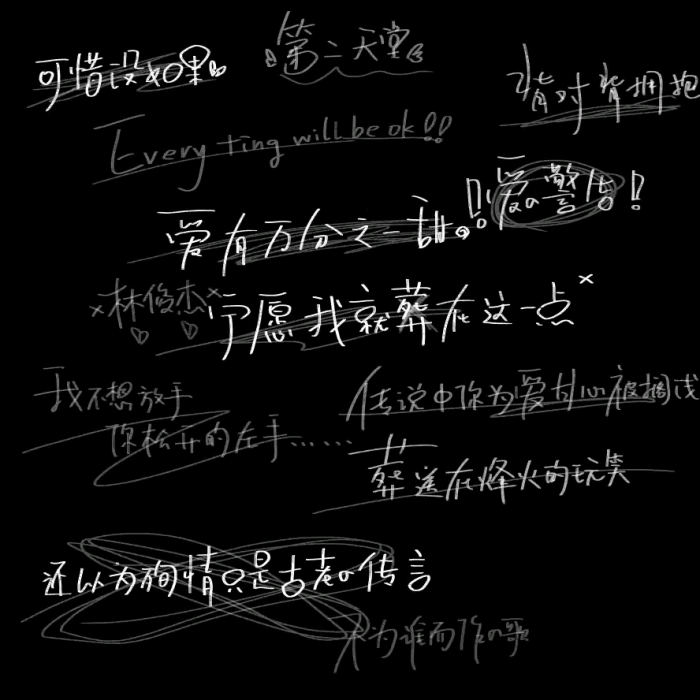 可惜没如果
第二天堂
背对背拥抱
Every ting will be ok!!
!!爱の警告!
爱有万分之一甜。
×林俊杰×
宁愿我就葬在这一点×
我不想放手
你松开的左手……
传说中你为爱甘心被搁浅
葬送在烽火的玩笑
还以为殉情只是古老の传言
不为谁而作の歌